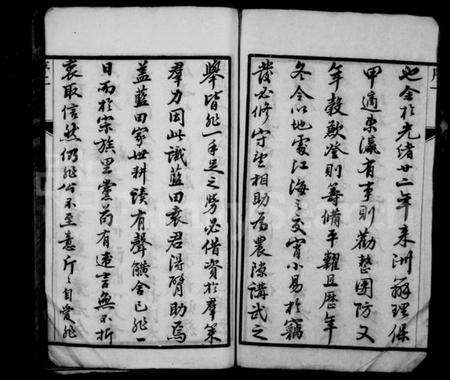 也余於光緒廿二年來洲辦理保
甲適東瀛有事則勸整團防又
年穀歉登則籌備平糶且歷年
冬令以地處江海之交宵小易於竊
發必修守望相助為農隙講武之
舉皆非一手足之勞必借資於群策
群力因此識藍田袁君得臂助焉
蓋藍田家世耕讀有聲黌舍已非一
日而於宗族里黨苟有違言無不折
衷取信然仍非公不至意斤斤自愛非